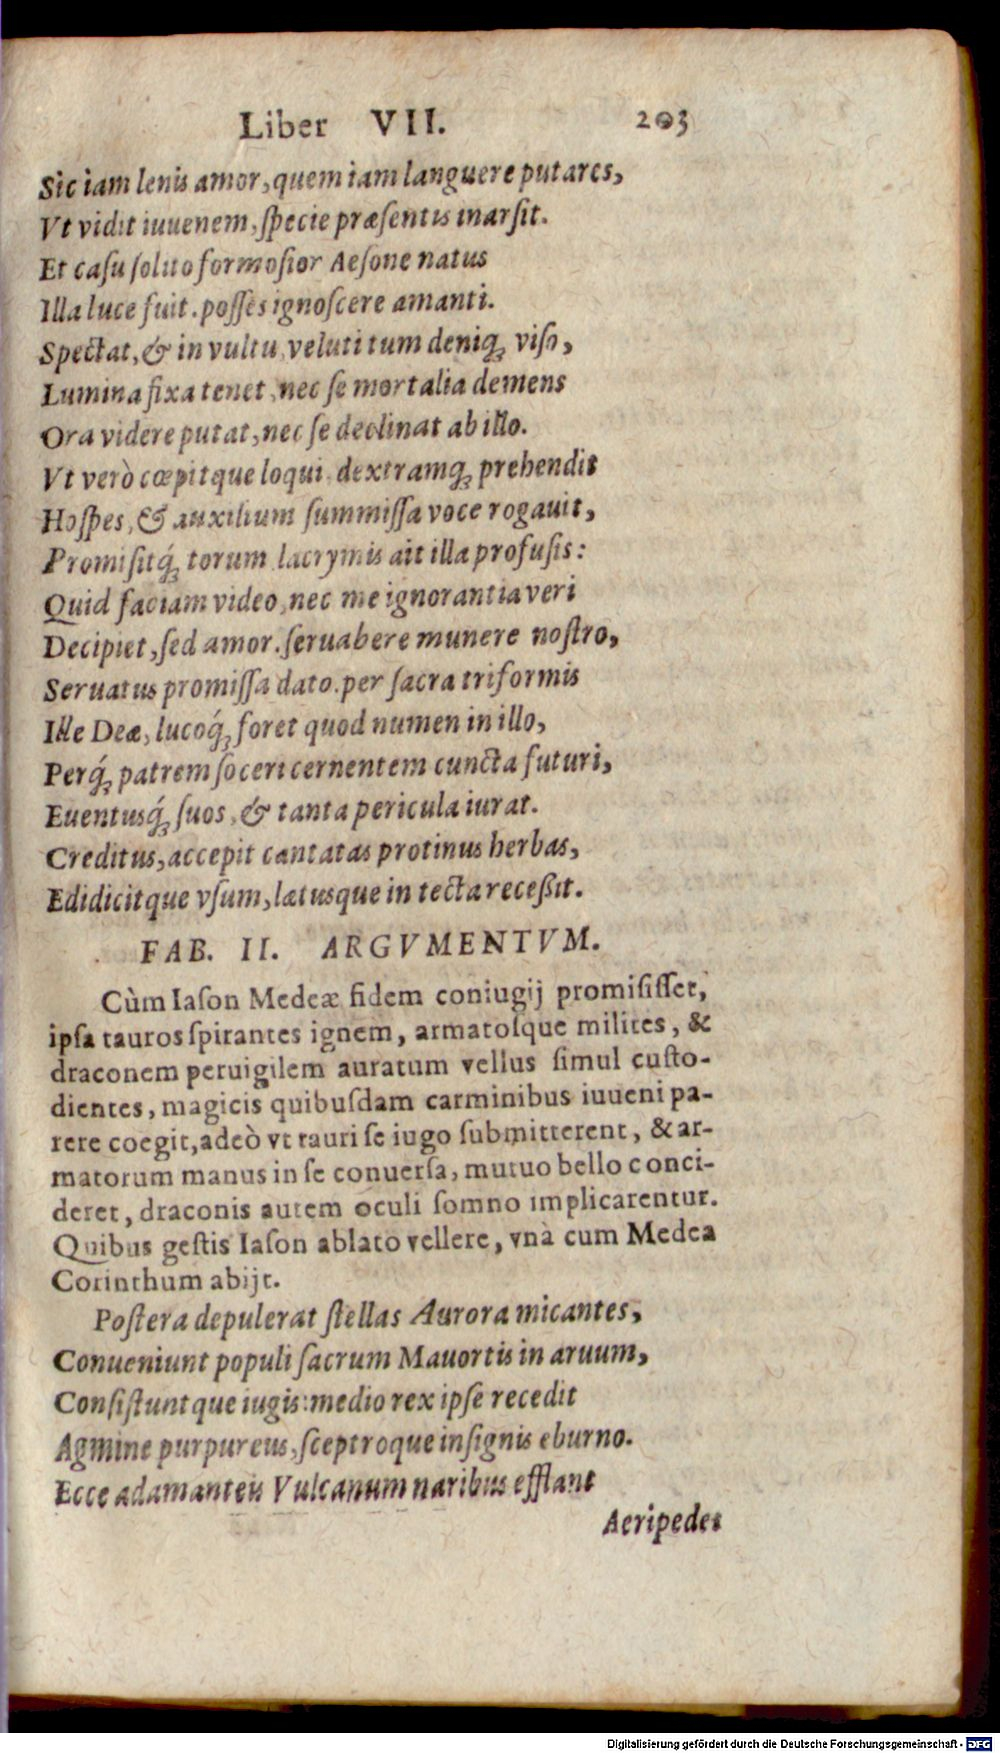 Liber VII. 203
Sic iam lenis amor, quem iam languere putares,
Vt vidit iuuenem, ſpecie præſentis inarſit.
Et caſu ſolito formoſior Aeſone natus
Illa luce fuit. poſſes ignoſcere amanti.
Spectat, & in vultu, veluti tum deniqꝫ viſo,
Lumina fixa tenet, nec ſe mortalia demens
Ora videre putat, nec ſe declinat ab illo.
Vt verò cœpitque loqui, dextramqꝫ prehendit
Hoſpes, & auxilium ſummiſſa voce rogauit,
Promiſitq́ꝫ torum lacrymis ait illa profuſis:
Quid faciam video, nec me ignorantia veri
Decipiet, ſed amor. ſeruabere munere noſtro,
Seruatus promiſſa dato. per ſacra triformis
Ille Deæ, lucoq́ꝫ foret quod numen in illo,
Perq́ꝫ patrem ſoceri cernentem cuncta futuri,
Euentusq́ꝫ ſuos, & tanta pericula iurat.
Creditus, accepit cantatas protinus herbas,
Edidicitque vſum, lætusque in tecta receßit.
FAB. II. ARGVMENTVM.
Cùm Iaſon Medeæ fidem coniugij promiſiſſet,
ipſa tauros ſpirantes ignem, armatoſque milites, &
draconem peruigilem auratum vellus ſimul cuſto-
dientes, magicis quibuſdam carminibus iuueni pa-
rere coegit, adeò vt tauri ſe iugo ſubmitterent, & ar-
matorum manus in ſe conuerſa, mutuo bello conci-
deret, draconis autem oculi ſomno implicarentur.
Quibus geſtis Iaſon ablato vellere, vnà cum Medea
Corinthum abijt.
Poſtera depulerat ſtellas Aurora micantes,
Conueniunt populi ſacrum Mauortis in aruum,
Conſiſtuntque iugis: medio rex ipſe recedit
Agmine purpureus, ſceptroque inſignis eburno.
Ecce adamanteis Vulcanum naribus efflant
Aeripedes
Digitalisierung gefördert durch die Deutsche Forschungsgemeinschaft - DFG